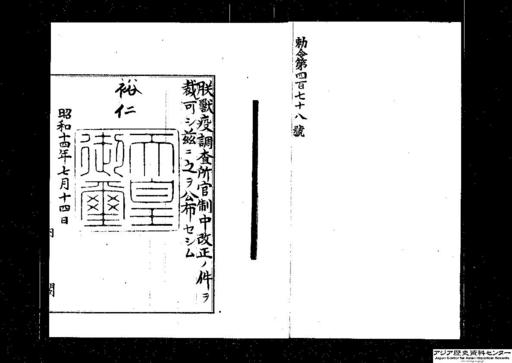 勅令第四百七十八號
朕獸疫調査所官制中改正ノ件ヲ
裁可シ茲ニ之ヲ公布セシム
裕仁
天皇
御璽
昭和十四年七月十四日
内
閣
アジア歴史資料センター
Japan Center for Asian Historical Records